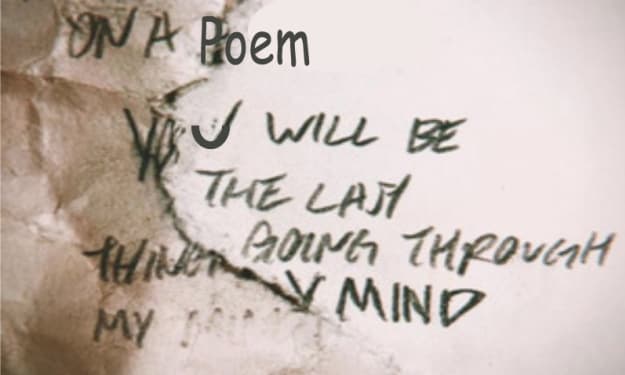 ON A Poem
YOU WILL BE
THE LAST
THING GOING THROUGH
MY MIND